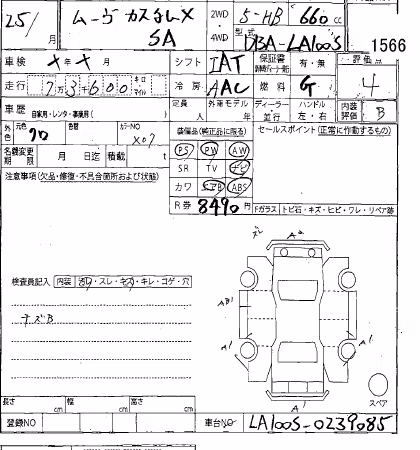 25/ 月 ムーヴ カスタム X 2WD 5-HB 660 cc
SA 4WD 型式 DBA-LA100S 1566
車検 × 年 × 月 シフト IAT 保証書 有・無 評価点
走行 7万3千600 キロ マイル 冷房 AAC 燃料 G 4
車歴 自家用・レンタ・事業用( ) 定員 人 外車モデル 年 ディーラー 並行 ハンドル 左・右 内装評価 B
外色 元色 クロ 色替 カラーNO X07 装備品(純正品に限る) セールスポイント(正常に作動するもの)
名義変更期限 月 日迄 積載 t PS PW AW
注意事項(欠品・修復・不具合箇所および状態) SR TV ナビ
カワ エアB ABS
R券 8490円 Fガラス トビ石・キズ・ヒビ・ワレ・リペア跡
A2
検査員記入 内装 汚レ・スレ・キズ・キレ・コゲ・穴
キズB
AB1
A1
A1
A1
スペア
長さ cm 幅 cm 高さ cm
A1
登録NO 車台NO LA100S-0239085